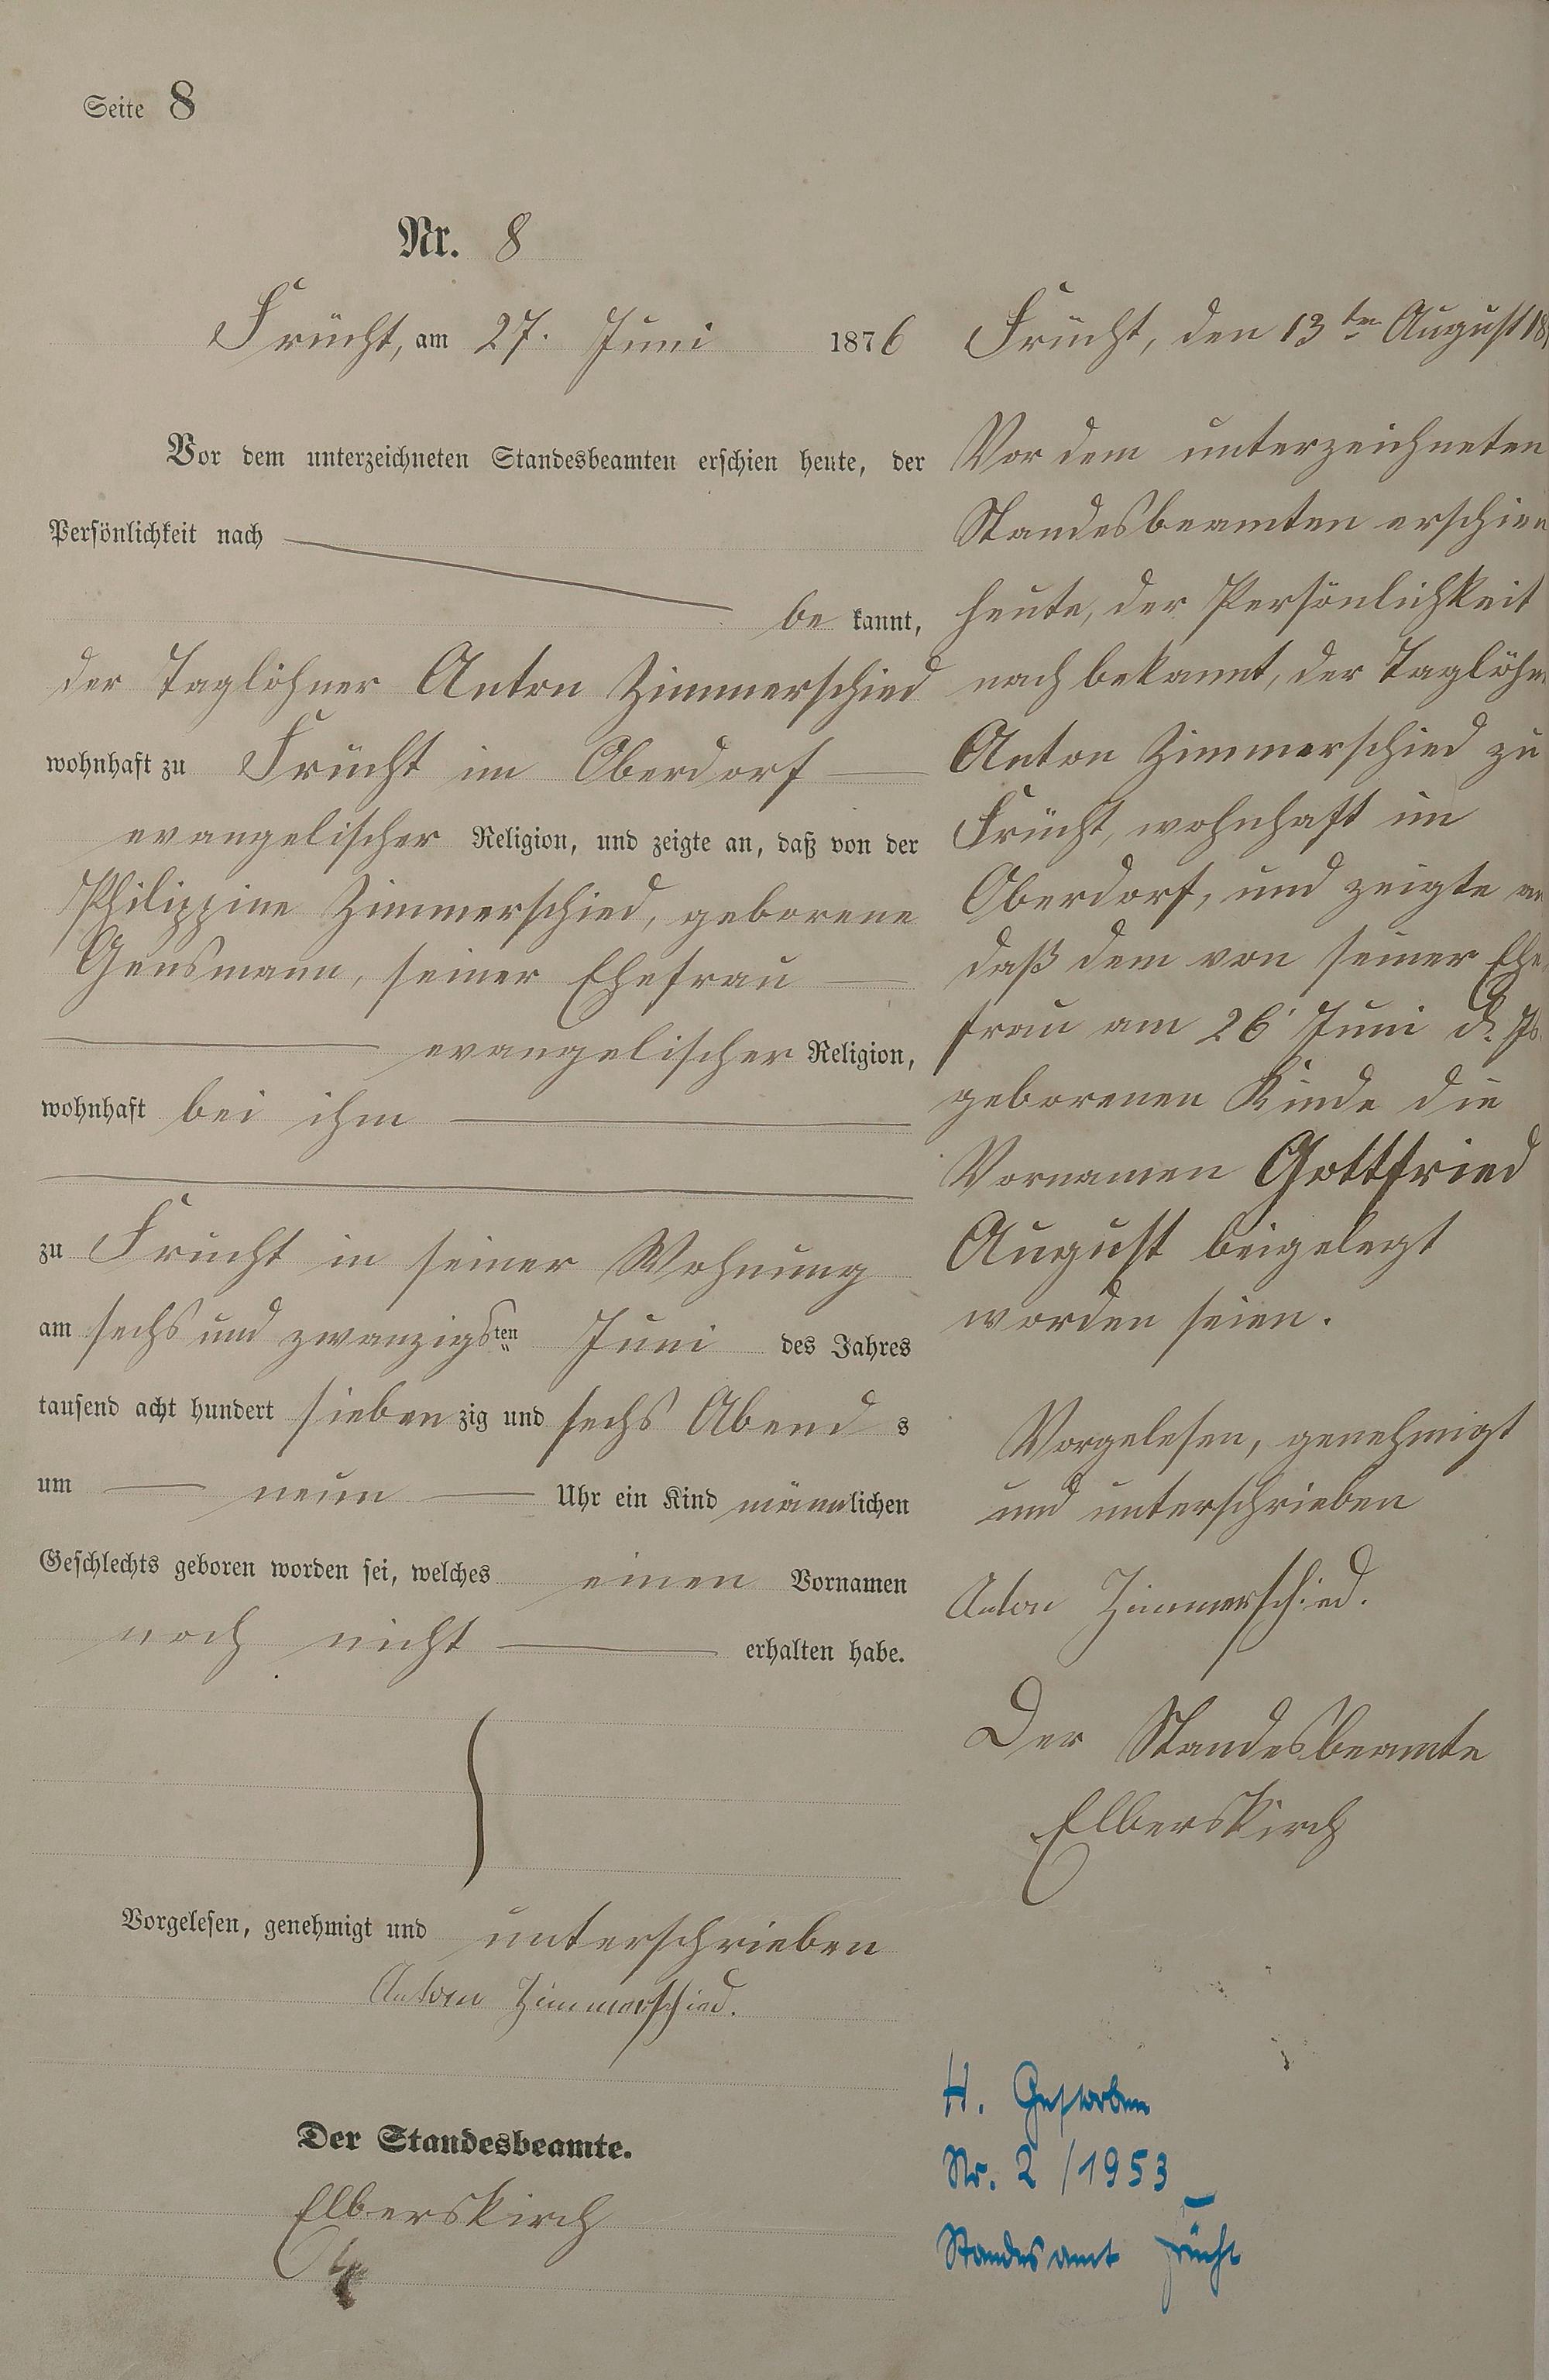 Seite 8
Nr. 8
Frücht, am 27. Juni 1876
Vor dem unterzeichneten Standesbeamten erschien heute, der
Persönlichkeit nach
be kannt,
der Taglöhner Anton Zimmerschied
wohnhaft zu Frücht im Oberdorf
evangelischer Religion, und zeigte an, daß von der
Philippine Zimmerschied, geborene
Gensmann, seiner Ehefrau
evangelischer Religion,
wohnhaft bei ihm
zu Frücht in seiner Wohnung
am sechs und zwanzigsten Juni des Jahres
tausend acht hundert siebenzig und sechs Abends
um neun Uhr ein Kind männlichen
Geschlechts geboren worden sei, welches einen Vornamen
noch nicht erhalten habe.
Vorgelesen, genehmigt und unterschrieben
Anton Zimmerschied.
Der Standesbeamte.
Elberskirch
Frücht, den 13ten August 18
Vor dem unterzeichneten
Standesbeamten erschien
heute, der Persönlichkeit
nach bekannt, der Taglöhn
Anton Zimmerschied zu
Frücht, wohnhaft im
Oberdorf, und zeigte an
daß dem von seiner Ehe
frau am 26' Juni d. Js.
geborenen Kinde die
Vornamen Gottfried
August beigelegt
worden seien.
Vorgelesen, genehmigt
und unterschrieben
Anton Zimmerschied.
Der Standesbeamte
Elberskirch
H. Gestorben
Nr. 2/1953
Standesamt Frücht